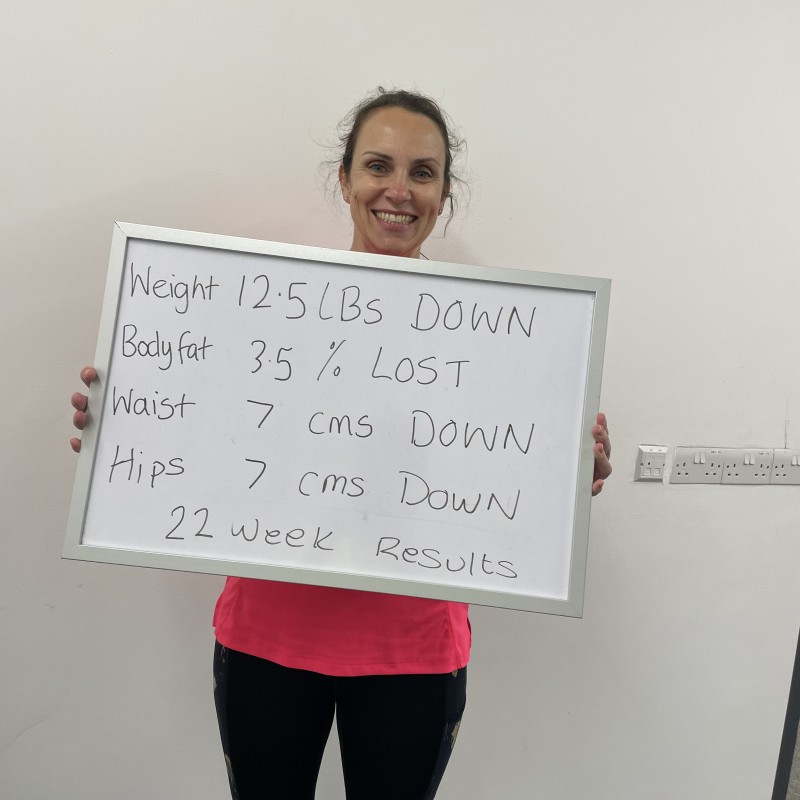 Weight 12.5 LBS DOWN
Bodyfat 3.5 % LOST
Waist 7 cms DOWN
Hips 7 cms DOWN
22 week Results